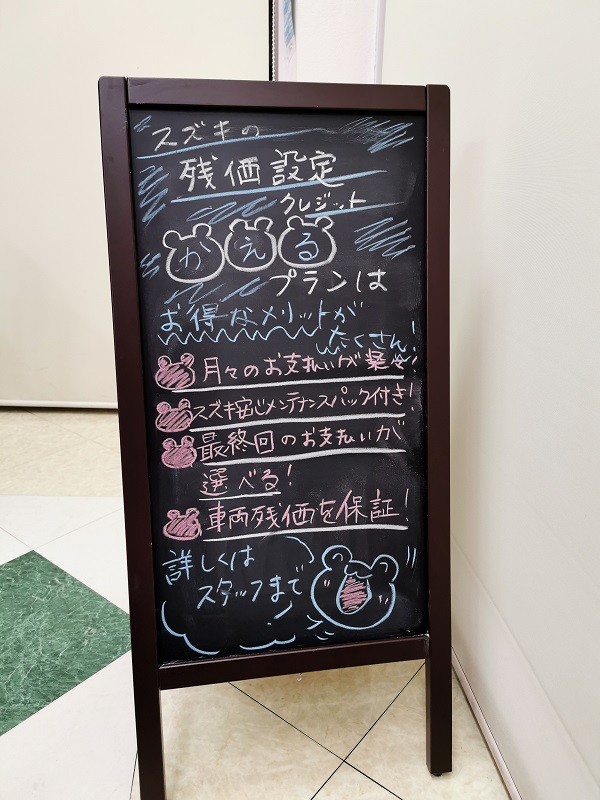 スズキの
残価設定
クレジット
かえる
プランは
お得なメリットが
たくさん!
月々のお支払いが楽々!
スズキ安心メンテナンスパック付き!
最終回のお支払いが
選べる!
車両残価を保証!
詳しくは
スタッフまで